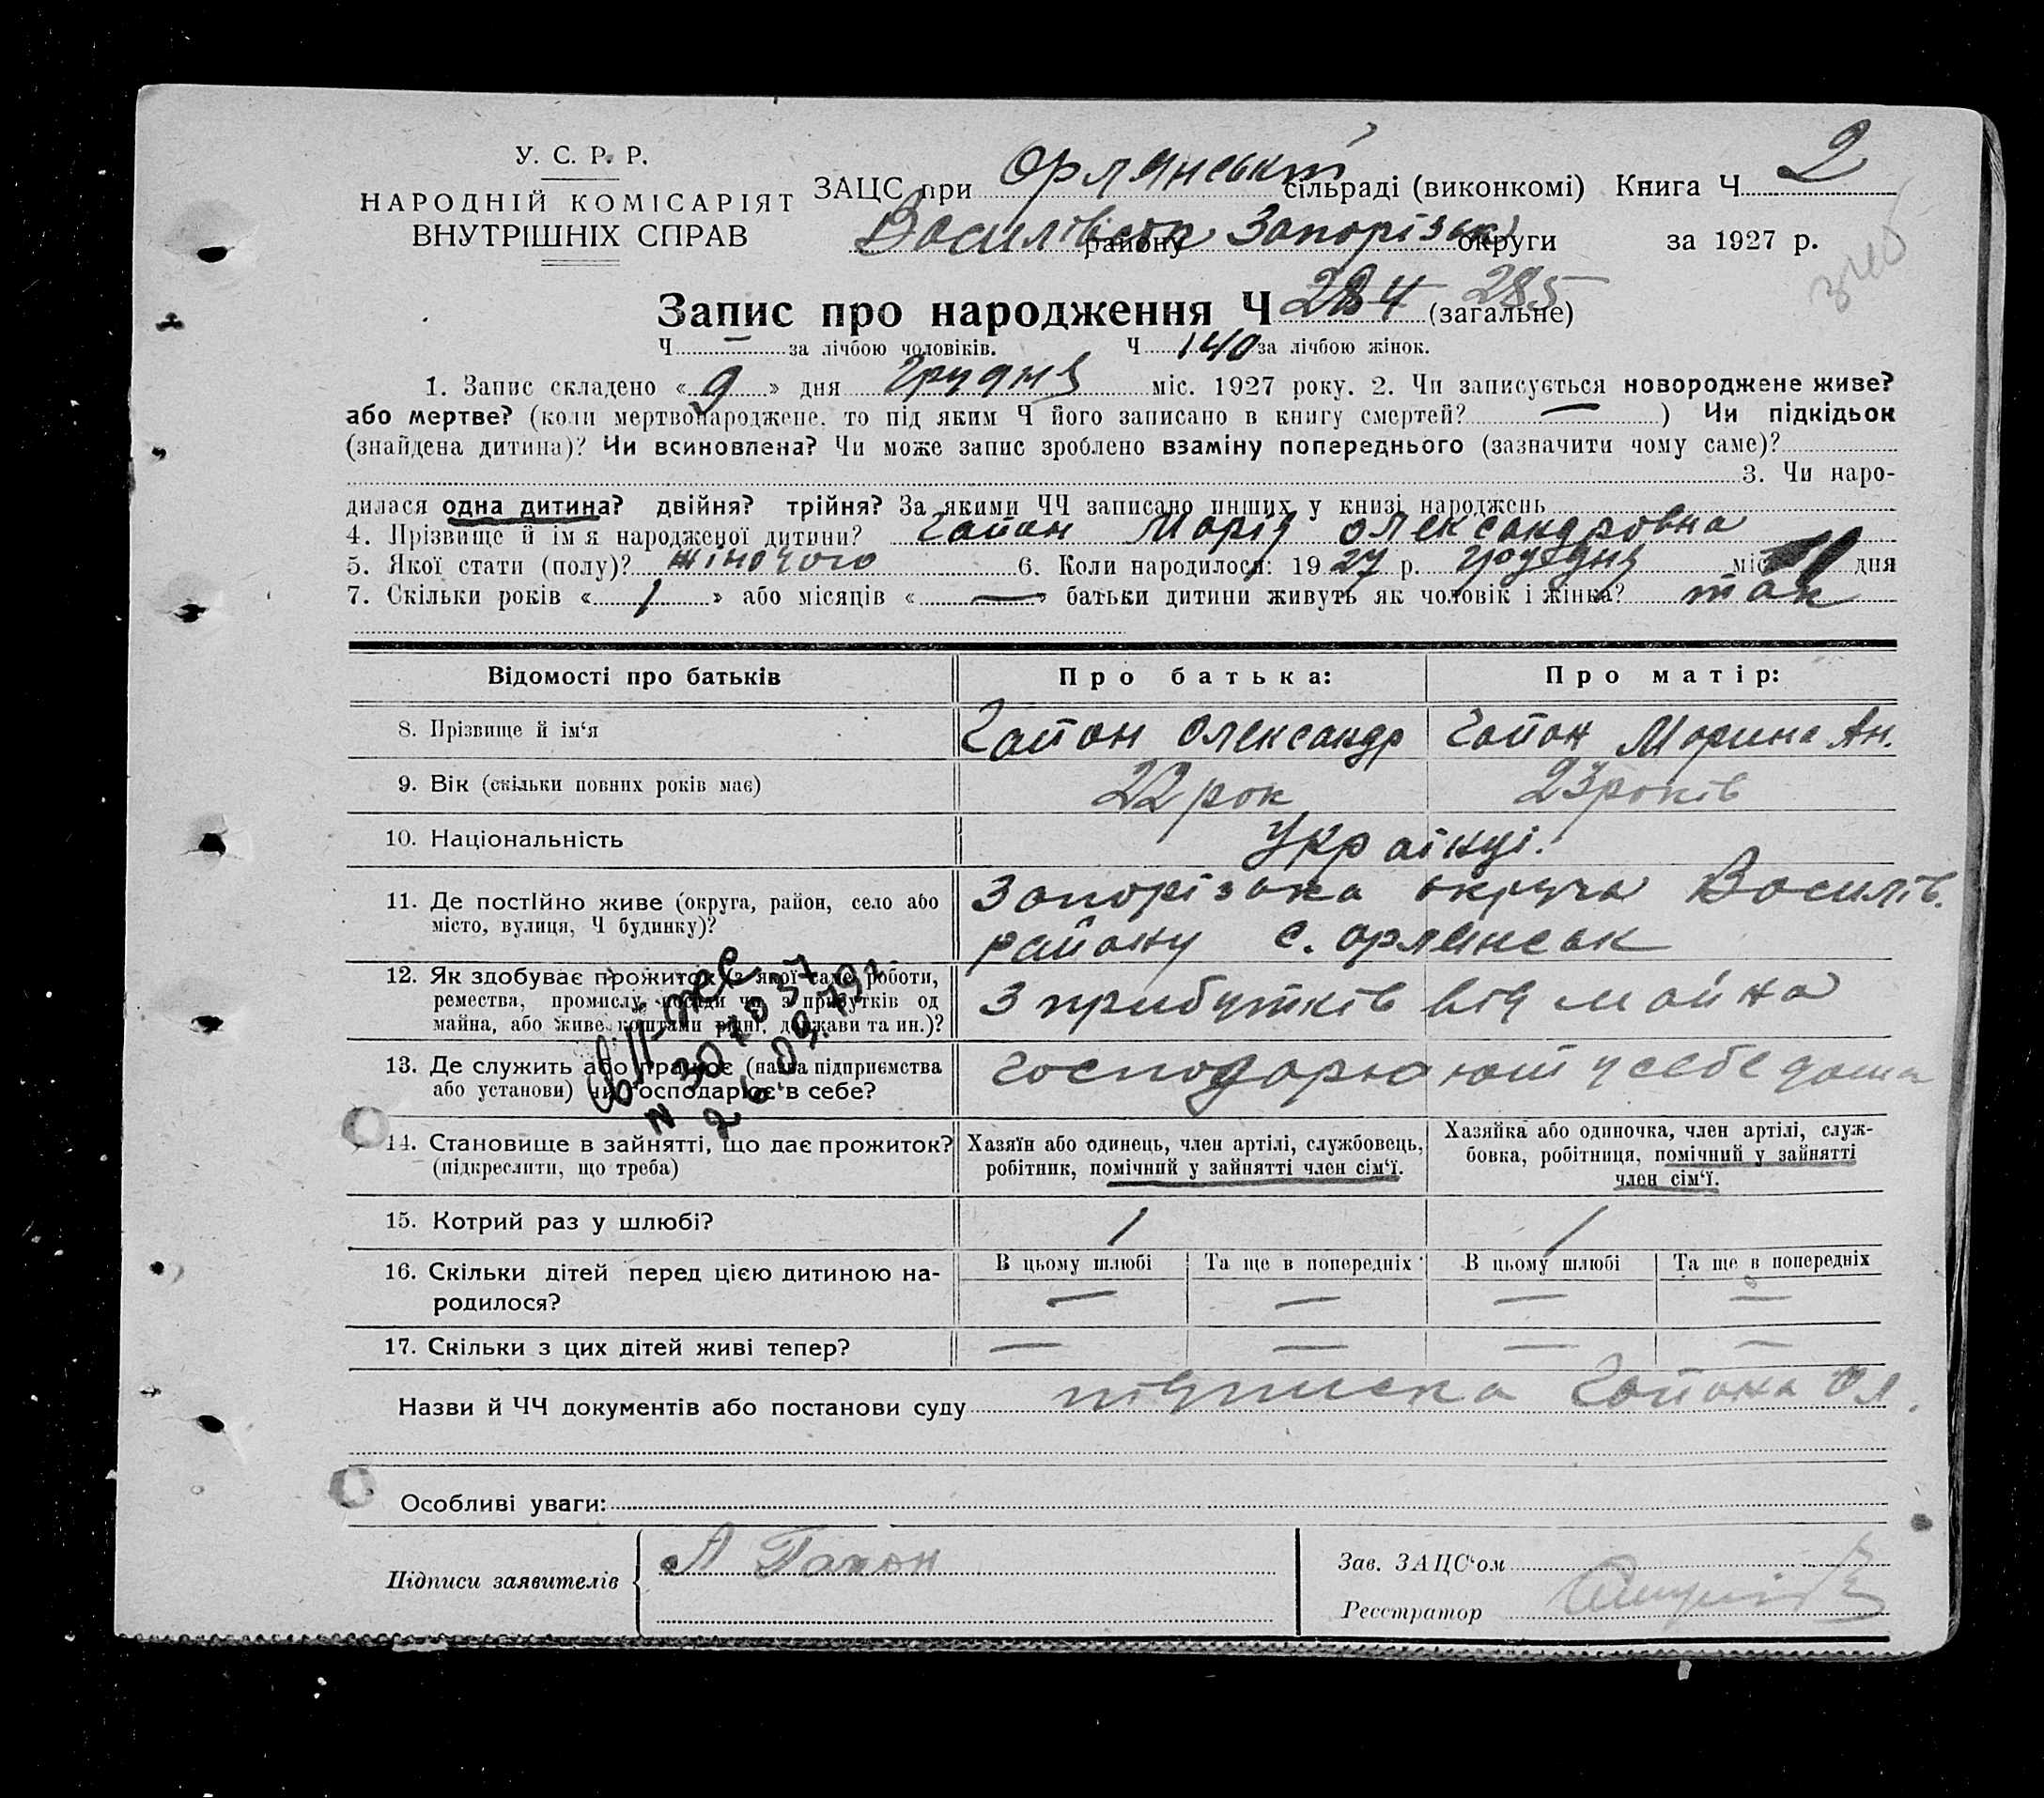 У. С. Р. Р.
НАРОДНІЙ КОМІСАРІЯТ
ВНУТРІШНІХ СПРАВ
ЗАЦС при Орлянській сільраді (виконкомі) Книга Ч 2
Василівськ району Запорізьк округи за 1927 р.
Запис про народження Ч 284 285 (загальне)
Ч — за лічбою чоловіків. Ч 140 за лічбою жінок.
1. Запис складено « 9 » дня Грудня міс. 1927 року. 2. Чи записується новороджене живе?
або мертве? (коли мертвонароджене, то під яким Ч його записано в книгу смертей? — ) Чи підкідьок
(знайдена дитина)? Чи всиновлена? Чи може запис зроблено взаміну попереднього (зазначити чому саме)?
3. Чи наро-
дилася одна дитина? двійня? трійня? За якими ЧЧ записано инших у книзі народжень
4. Прізвище й ім я народженої дитини? Гапон Марія Олександровна
5. Якої стати (полу)? жіночого 6. Коли народилося: 1927 р. грудня міс. дня
7. Скільки років « 1 » або місяців « — » батьки дитини живуть як чоловік і жінка? так
Відомості про батьків Про батька: Про матір:
8. Прізвище й ім‘я Гапон Олександр Гапон Марина Ан.
9. Вік (скільки повних років має) 22 рок 23 років
10. Національність Українці.
11. Де постійно живе (округа, район, село або
місто, вулиця, Ч будинку)?
Запорізька округа Василів.
району с. Орлянськ
12. Як здобуває прожиток (з якої саме роботи,
ремества, промислу, посади чи з прибутків од
майна, або живе коштами рідні, держави та ин.)?
З прибутків від майна
13. Де служить або працює (назва підприємства
або установи) чи господарює в себе?
господарюють у себе дома
N 307037
26.09.79г
14. Становище в зайнятті, що дає прожиток?
(підкреслити, що треба)
Хазяїн або одинець, член артілі, службовець,
робітник, помічний у зайнятті член сім‘ї.
Хазяйка або одиночка, член артілі, служ-
бовка, робітниця, помічний у зайнятті
член сім‘ї.
15. Котрий раз у шлюбі? 1 1
16. Скільки дітей перед цією дитиною на-
родилося?
В цьому шлюбі Та ще в попередніх В цьому шлюбі Та ще в попередніх
— — — —
17. Скільки з цих дітей живі тепер? — — — —
Назви й ЧЧ документів або постанови суду підписка Гапона Ол.
Особливі уваги:
Підписи заявителів А Гапон
Зав. ЗАЦС‘ом
Реєстратор